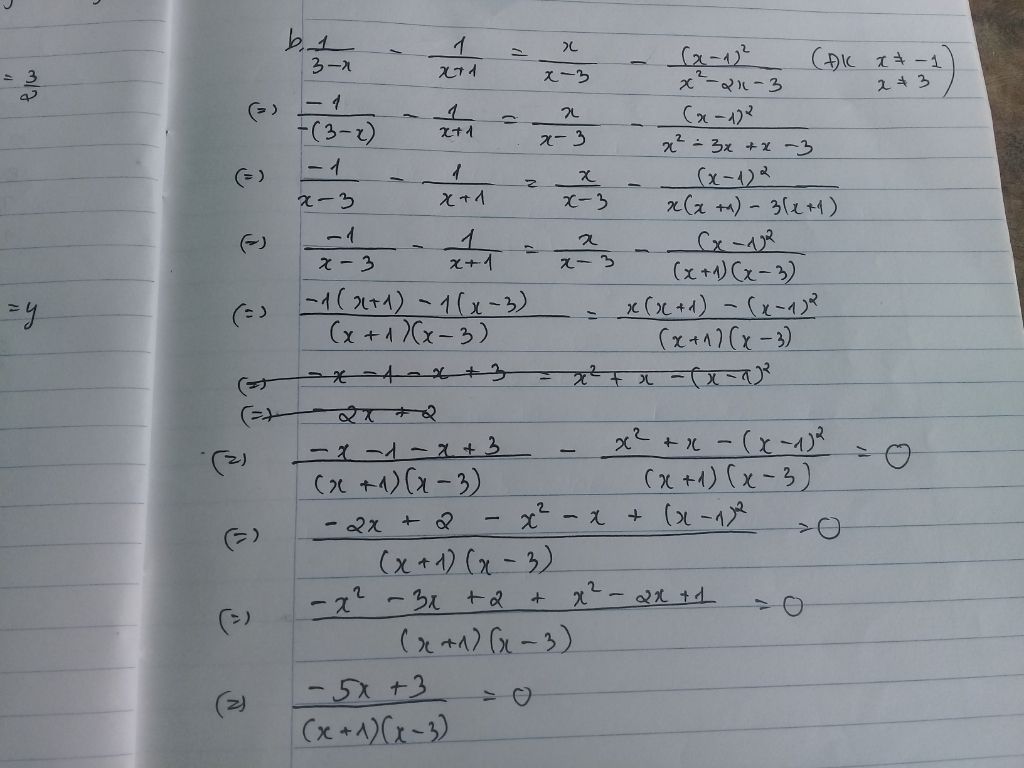 = 3/2
= y
b, 1/(3-x) - 1/(x+1) = x/(x-3) - (x-1)²/(x²-2x-3) (ĐK x ≠ -1 x ≠ 3)
(=) -1/-(3-x) - 1/(x+1) = x/(x-3) - (x-1)²/(x²-3x+x-3)
(=) -1/(x-3) - 1/(x+1) = x/(x-3) - (x-1)²/(x(x+1)-3(x+1))
(=) -1/(x-3) - 1/(x+1) = x/(x-3) - (x-1)²/((x+1)(x-3))
(=) (-1(x+1)-1(x-3))/((x+1)(x-3)) = (x(x+1)-(x-1)²)/((x+1)(x-3))
(=) -x-1-x+3 = x²+x-(x-1)²
(=) -2x+2
(=) (-x-1-x+3)/((x+1)(x-3)) - (x²+x-(x-1)²)/((x+1)(x-3)) = 0
(=) (-2x+2-x²-x+(x-1)²)/((x+1)(x-3)) = 0
(=) (-x²-3x+2+x²-2x+1)/((x+1)(x-3)) = 0
(=) (-5x+3)/((x+1)(x-3)) = 0